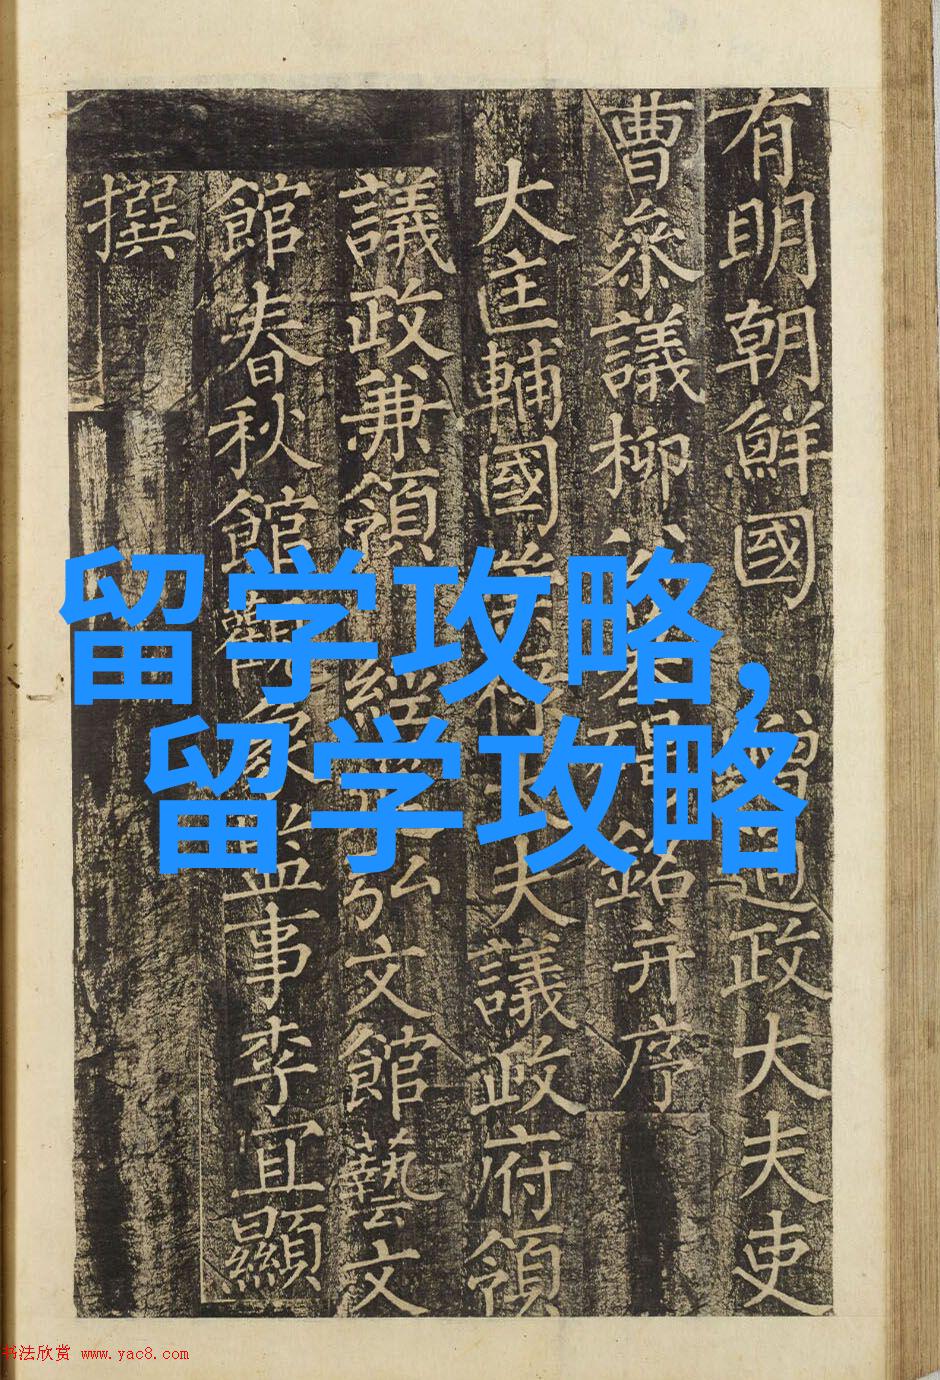 有明朝鮮國 贈通政大夫吏
曹叅議柳公墓碣銘并序
大匡輔國崇祿大夫議政府領
議政兼領經筵弘文館藝文
館春秋館觀象監事李宜顯
撰
留学攻略,
留学攻略
书法欣赏 www.yac8.com